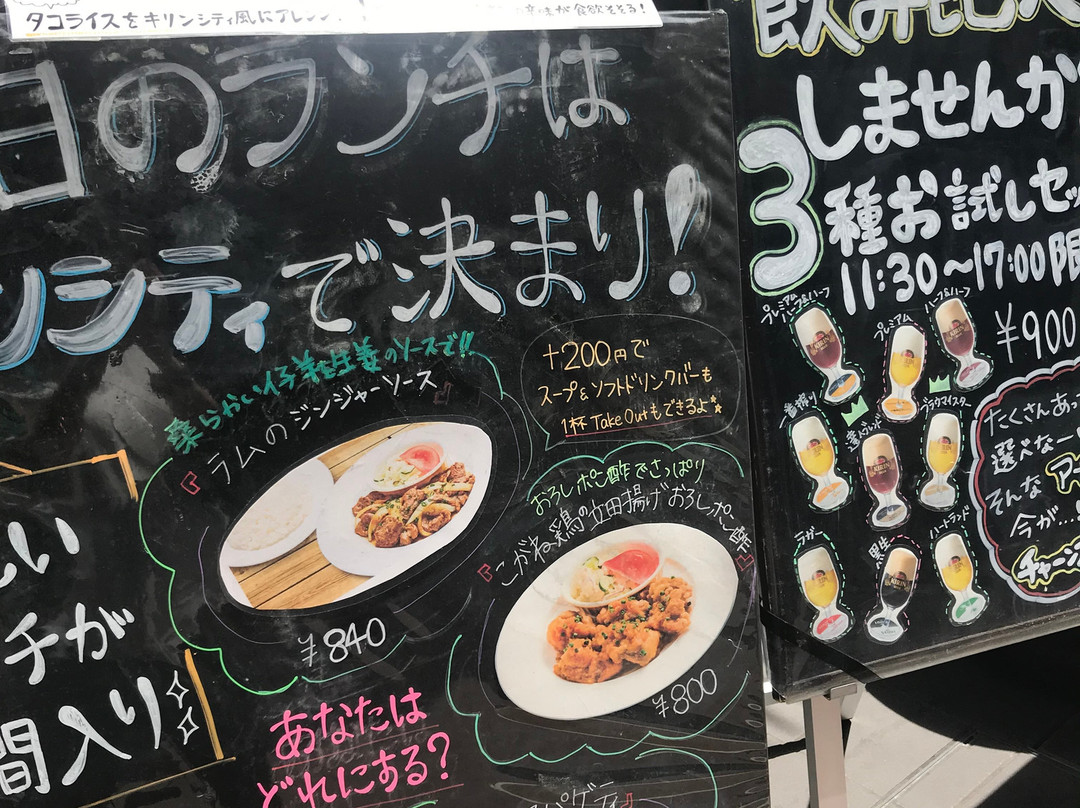 タコライスをキリンシティ風にアレンジ!
味が食欲そそる!
日のランチは
ンシティで決まり!
柔らかい仔羊を生姜のソースで!!
ラムのジンジャーソース
¥840
+200円で
スープ&ソフトドリンクバーも
1杯 Take Outもできるよ
おろしポン酢でさっぱり
こがね鶏の立田揚げおろしポン酢
¥800
しい
チが
間入り
あなたは
どれにする?
パゲティ
飲み比べ
しませんか
3種お試しセッ
11:30〜17:00限
¥900
プレミアム
ハーフ&ハーフ
プレミアム
ハーフ&ハーフ
一番搾り
ブラウマイスター
ラガー
黒生
ハートランド
たくさんあっ
選べな
そんな
今が…
チャー